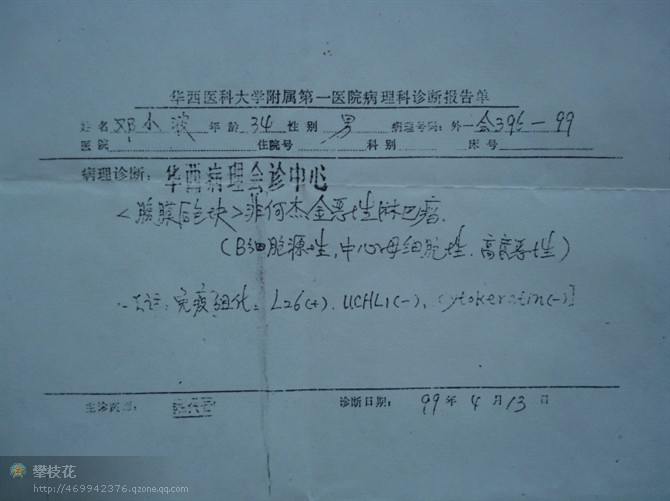 华西医科大学附属第一医院病理科诊断报告单
姓名 邓小波 年龄 34 性别 男 病理号码: 外-会395-99
医院 住院号 科别 床号
病理诊断: 华西病理会诊中心
<腹膜后包块>非何杰金恶性淋巴瘤.
(B细胞源性,中心母细胞性.高度恶性)
注: 免疫组化: L26(+). UCHL1(-), Cytokeratin(-)]
主诊医师:
诊断日期: 99年4月13日
攀枝花
http://469942376.qzone.qq.com